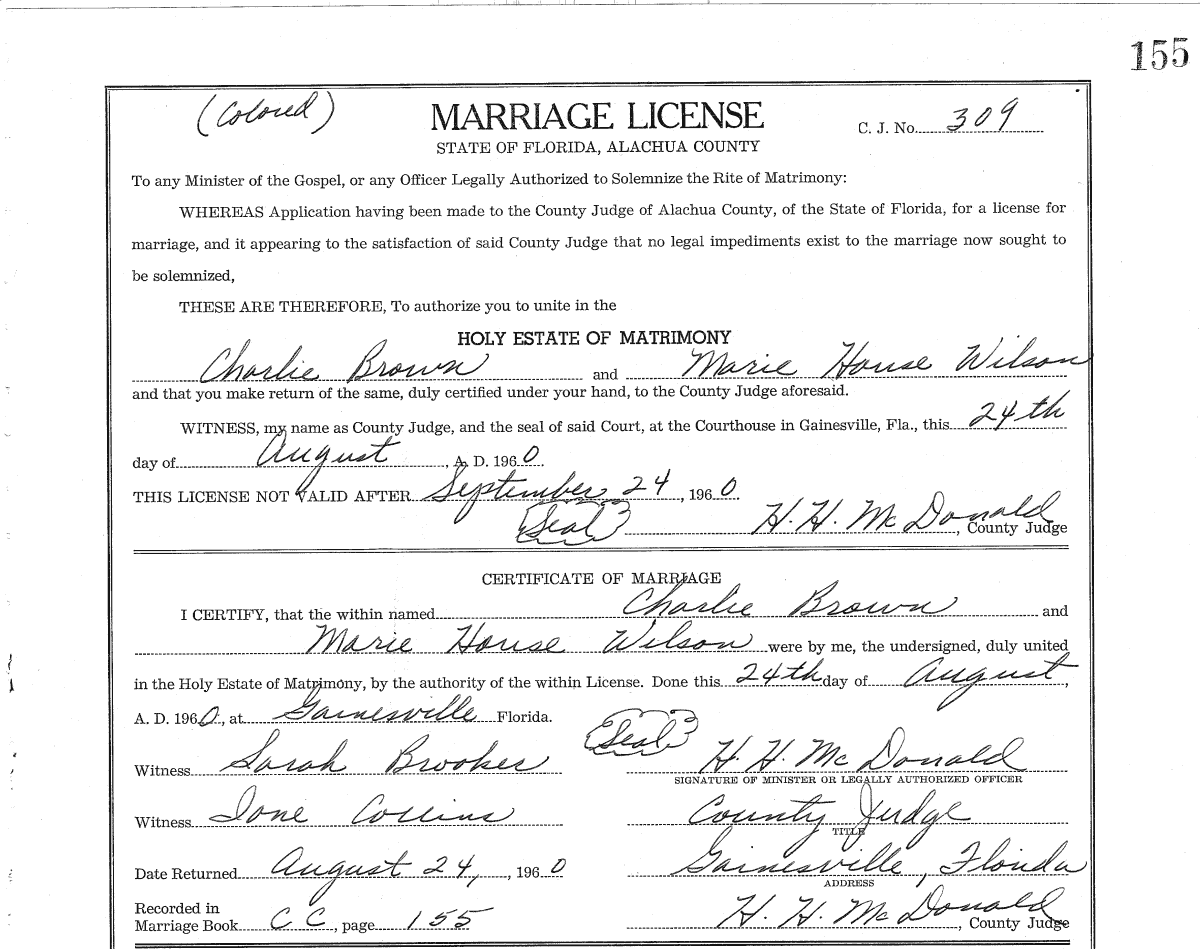 155
(Colored)
MARRIAGE LICENSE
C. J. No. 309
STATE OF FLORIDA, ALACHUA COUNTY
To any Minister of the Gospel, or any Officer Legally Authorized to Solemnize the Rite of Matrimony:
WHEREAS Application having been made to the County Judge of Alachua County, of the State of Florida, for a license for
marriage, and it appearing to the satisfaction of said County Judge that no legal impediments exist to the marriage now sought to
be solemnized,
THESE ARE THEREFORE, To authorize you to unite in the
HOLY ESTATE OF MATRIMONY
Charlie Brown and Marie House Wilson
and that you make return of the same, duly certified under your hand, to the County Judge aforesaid.
WITNESS, my name as County Judge, and the seal of said Court, at the Courthouse in Gainesville, Fla., this 24th
day of August, A. D. 1960.
THIS LICENSE NOT VALID AFTER September 24, 1960.
(Seal) H. H. McDonald, County Judge
CERTIFICATE OF MARRIAGE
I CERTIFY, that the within named Charlie Brown and
Marie House Wilson were by me, the undersigned, duly united
in the Holy Estate of Matrimony, by the authority of the within License. Done this 24th day of August,
A. D. 1960, at Gainesville Florida.
(Seal)
Witness Sarah Brookes H. H. McDonald
SIGNATURE OF MINISTER OR LEGALLY AUTHORIZED OFFICER
Witness Ione Collins County Judge
TITLE
Date Returned August 24, , 1960 Gainesville, Florida
ADDRESS
Recorded in
Marriage Book CC, page 155 H. H. McDonald, County Judge